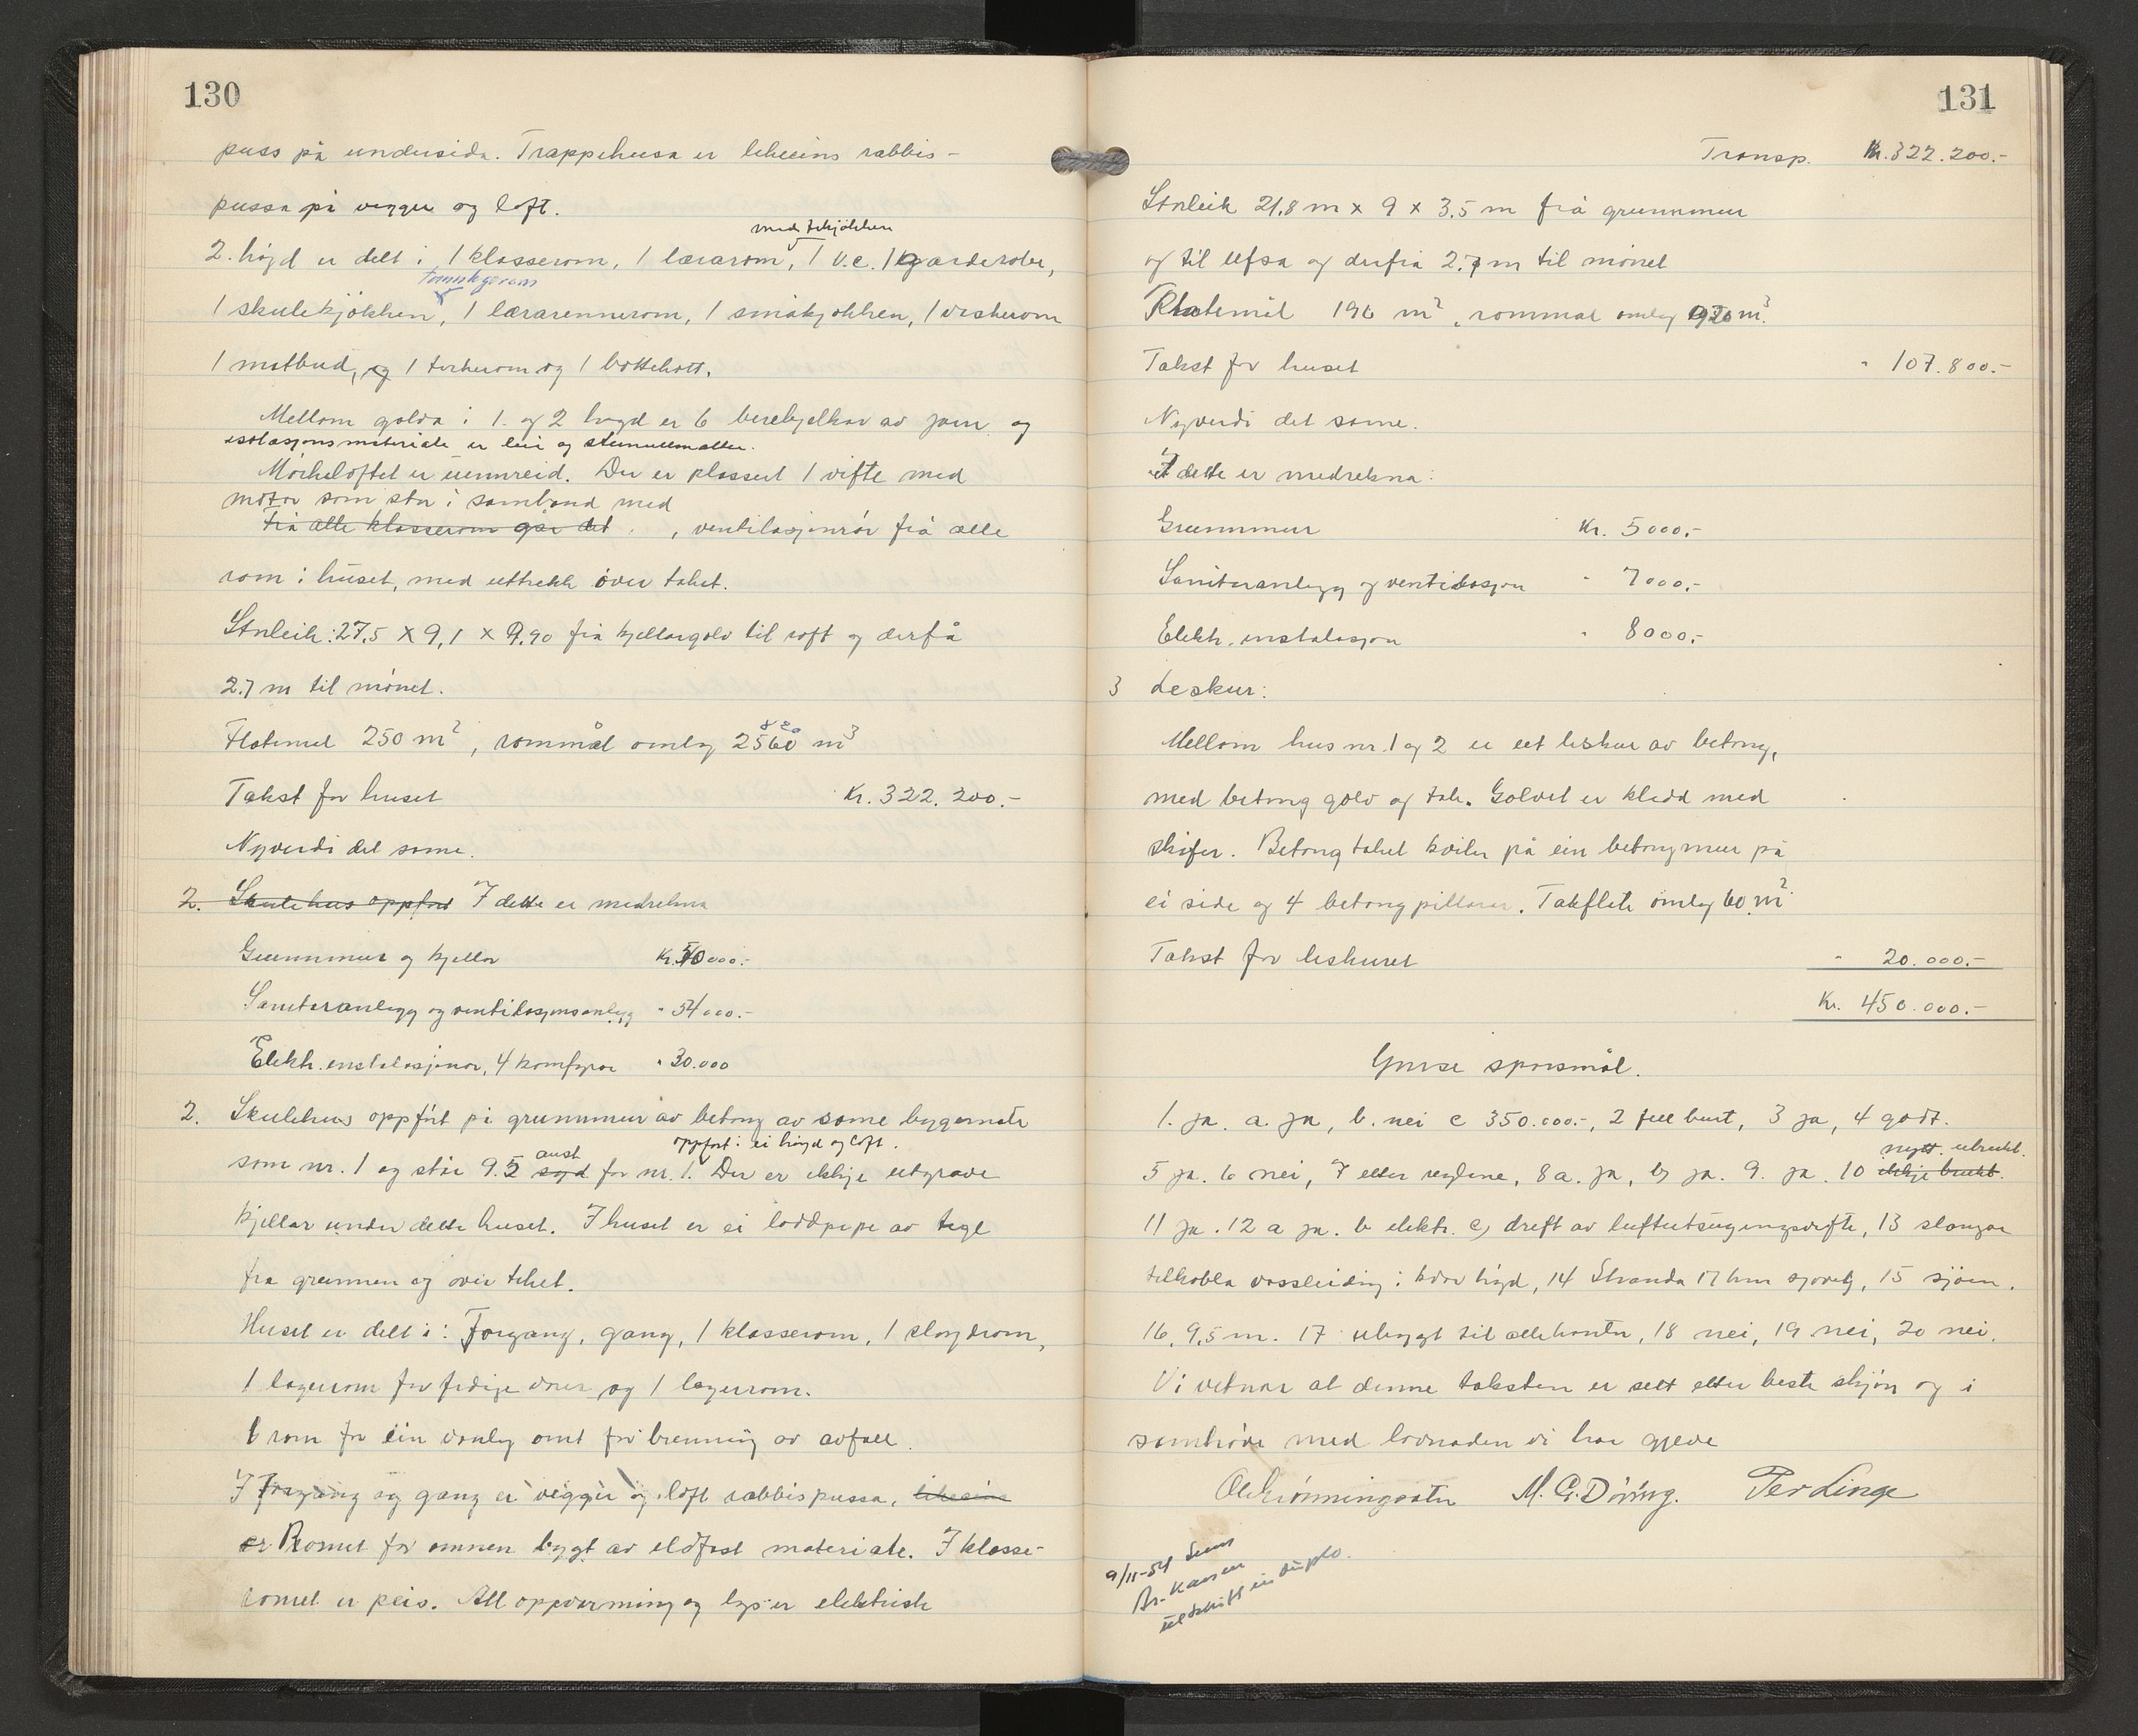 130
puss på undersida. Trappehusa er likeeins rabbis-
pussa på vegger og loft.
med tekjökken
2. högd er delt i 1 klasserom, 1 lærarom, 1 v.c. 1 garderobe,
1 skulekjökken, 1 lærarennerom, 1 småkjökken, 1 vaskerom
1 matbud, og 1 torkerom og 1 bottekott.
Mellom golva i 1. og 2 högd er 6 berebjelkar av jarn og
isolasjonsmateriale er leir og steinullmatter.
Mörkeloftet er uinnreid. Der er plassert 1 vifte med
motor som står i samband med
frå alle klasserom går det , ventilasjonsrör frå alle
rom i huset, med uttrekk över taket.
Storleik: 27,5 x 9,1 x 9,90 frå kjellargolv til loft og derfå
2.7 m til mönet.
Flatemål 250 m², rommål omlag 2560 m³
820
Takst for huset Kr. 322.200.-
Nyverdi det same.
2. Skulehus oppført I dette er medrekna
Grunnmur og kjellar Kr. 50000.-
Sanitæranlegg og ventilasjonsanlegg " 54000.-
Elektr. installasjonar, 4 komfyrar " 30.000
2. Skulehus oppfört på grunnmur av betong av same byggemåte
aust oppfört i ei högd og loft.
som nr. 1 og står 9.5 syd for nr. 1. Der er ikkje utgrave
kjellar under dette huset. I huset er ei loddpipe av tegl
fra grunnen og över taket.
Huset er delt i: Forgang, gang, 1 klasserom, 1 slöydrom,
1 lagerrom for ferdige varer og 1 lagerrom.
1 rom for ein vanleg omn for brenning av avfall.
I Forgang og gang er vegger og loft rabbispussa, likeeins
er Romet for omnen bygt av eldfast materiale. I klasse-
romet er peis. All oppvarming og lys er elektrisk
131
Transp. Kr. 322.200.-
Storleik 21,8 m x 9 x 3,5 m frå grunnmur
og til ufsa og derfrå 2.7 m til mönet
Flatemål 196 m², rommål omlag 920 m³.
Takst for huset " 107.800.-
Nyverdi det same.
I dette er medrekna:
Grunnmur Kr. 5000.-
Sanitæranlegg og ventilasjon " 7000.-
Elektr. installasjon " 8000.-
3 Leskur:
Mellom hus nr. 1 og 2 er eit leskur av betong,
med betong golv og tak. Golvet er kledd med
skifer. Betong taket kviler på ein betongmur på
ei side og 4 betong pillarar. Takflate omlag 60 m²
Takst for leskuret " 20.000.-
Kr. 450.000.-
Ymse spörsmål.
1. ja. a. ja, b. nei c 350.000.-, 2 full bunt, 3 ja, 4 godt.
nytt. ubrukt.
5 ja. 6 nei, 7 etter reglane, 8 a. ja, b) ja. 9. ja. 10 ikkje brukt.
11 ja. 12 a ja. b elektr. c) dreft av luftutsugingsvifte, 13 slangar
tilkobla vassleiding i kvar högd, 14 Stranda 17 km sjöveg, 15 sjöen.
16, 9,5 m. 17 ubygt til alle kantar, 18 nei, 19 nei, 20 nei.
Vi vitnar at denne taksten er sett etter beste skjön og i
samhöve med lovnaden vi har gjeve
M. G. Döving. Per Linge
9/11-54 Sendt
utskrift in duplo.